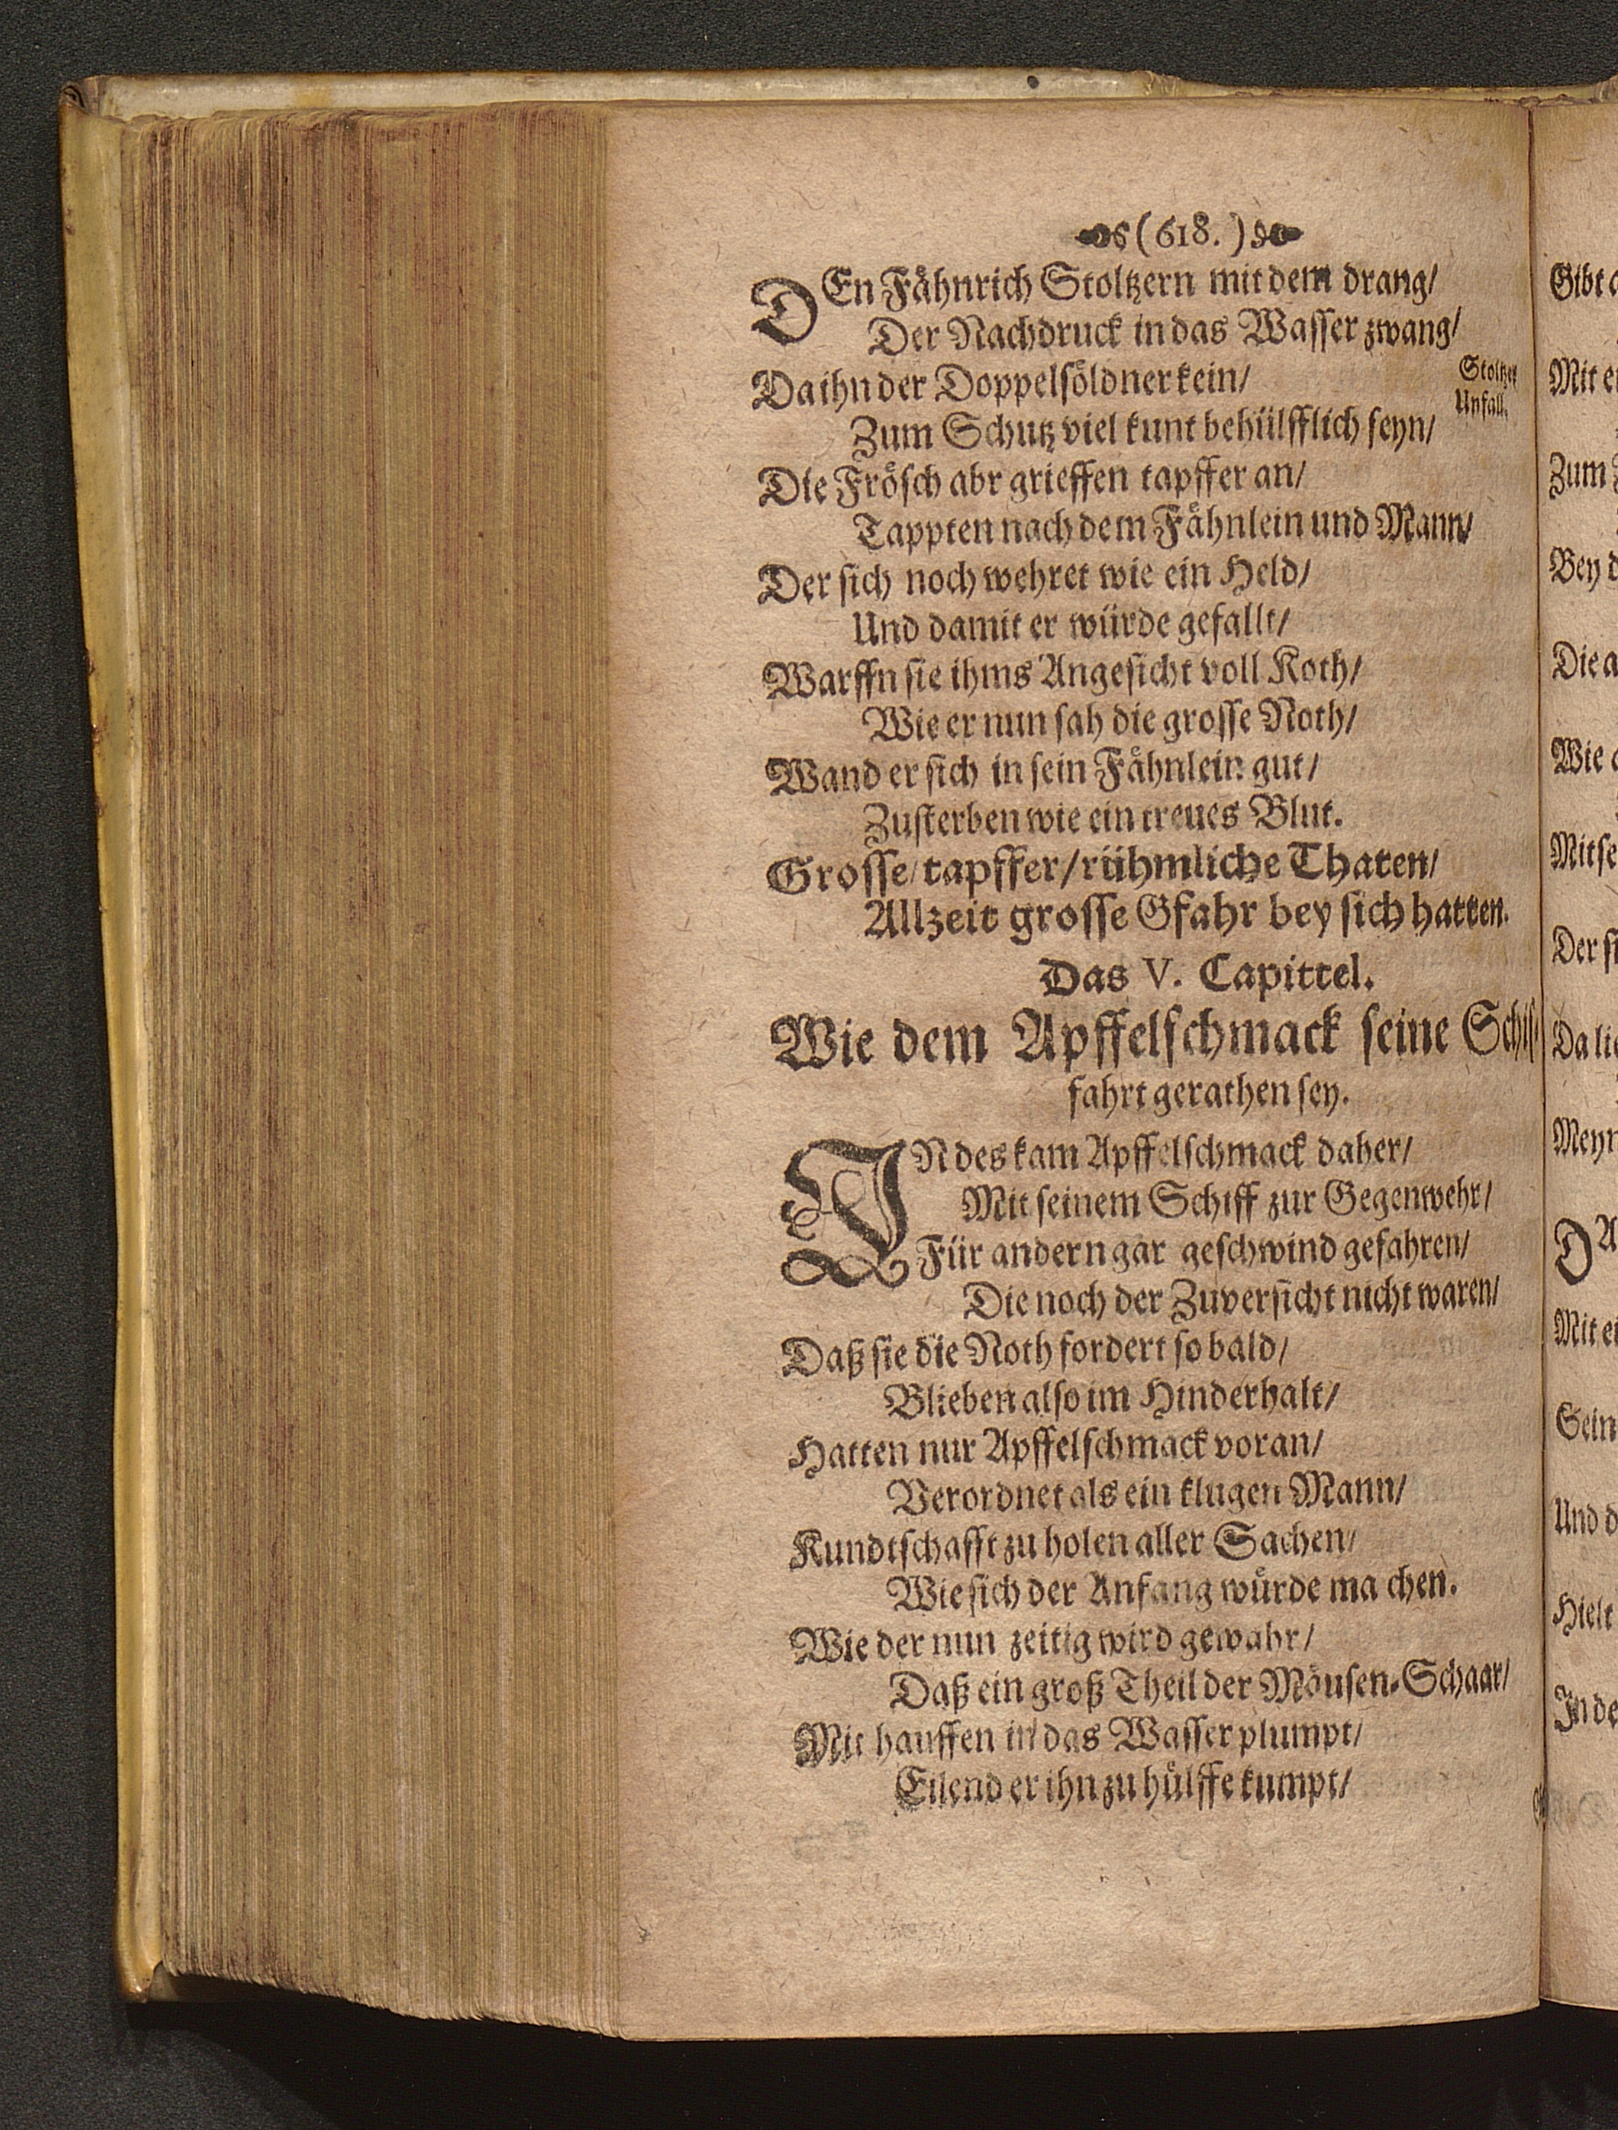 (618.)
DEn Fåhnrich Stoltzern mit dem drang/
Der Nachdruck in das Wasser zwang/
Da ihn der Doppelsöldner kein/
Stoltzer
Unfall.
Zum Schutz viel kunt behülfflich seyn/
Die Frösch abr grieffen tapffer an/
Tappten nach dem Fåhnlein und Mann/
Der sich noch wehret wie ein Held/
Und damit er würde gefallt/
Warffn sie ihms Angesicht voll Koth/
Wie er nun sah die grosse Noth/
Wand er sich in sein Fåhnlein gut/
Zu sterben wie ein treues Blut.
Grosse/tapffer/rühmliche Thaten/
Allzeit grosse Gfahr bey sich hatten.
Das V. Capittel.
Wie dem Apffelschmack seine Schif-
fahrt gerathen sey.
INdes kam Apffelschmack daher/
Mit seinem Schiff zur Gegenwehr/
Für andern gar geschwind gefahren/
Die noch der Zuversicht nicht waren/
Daß sie die Noth fordert so bald/
Blieben also im Hinderhalt/
Hatten nur Apffelschmack voran/
Verordnet als ein klugen Mann/
Kundtschafft zu holen aller Sachen/
Wie sich der Anfang würde ma chen.
Wie der nun zeitig wird gewahr/
Daß ein groß Theil der Möusen-Schaar/
Mit hauffen in das Wasser plumpt/
Eilend er ihn zu hülffe kumpt/
Gibt
Mit
Zum
Bey
Die
Wie
Der
Da
Mit
Und
Hielt